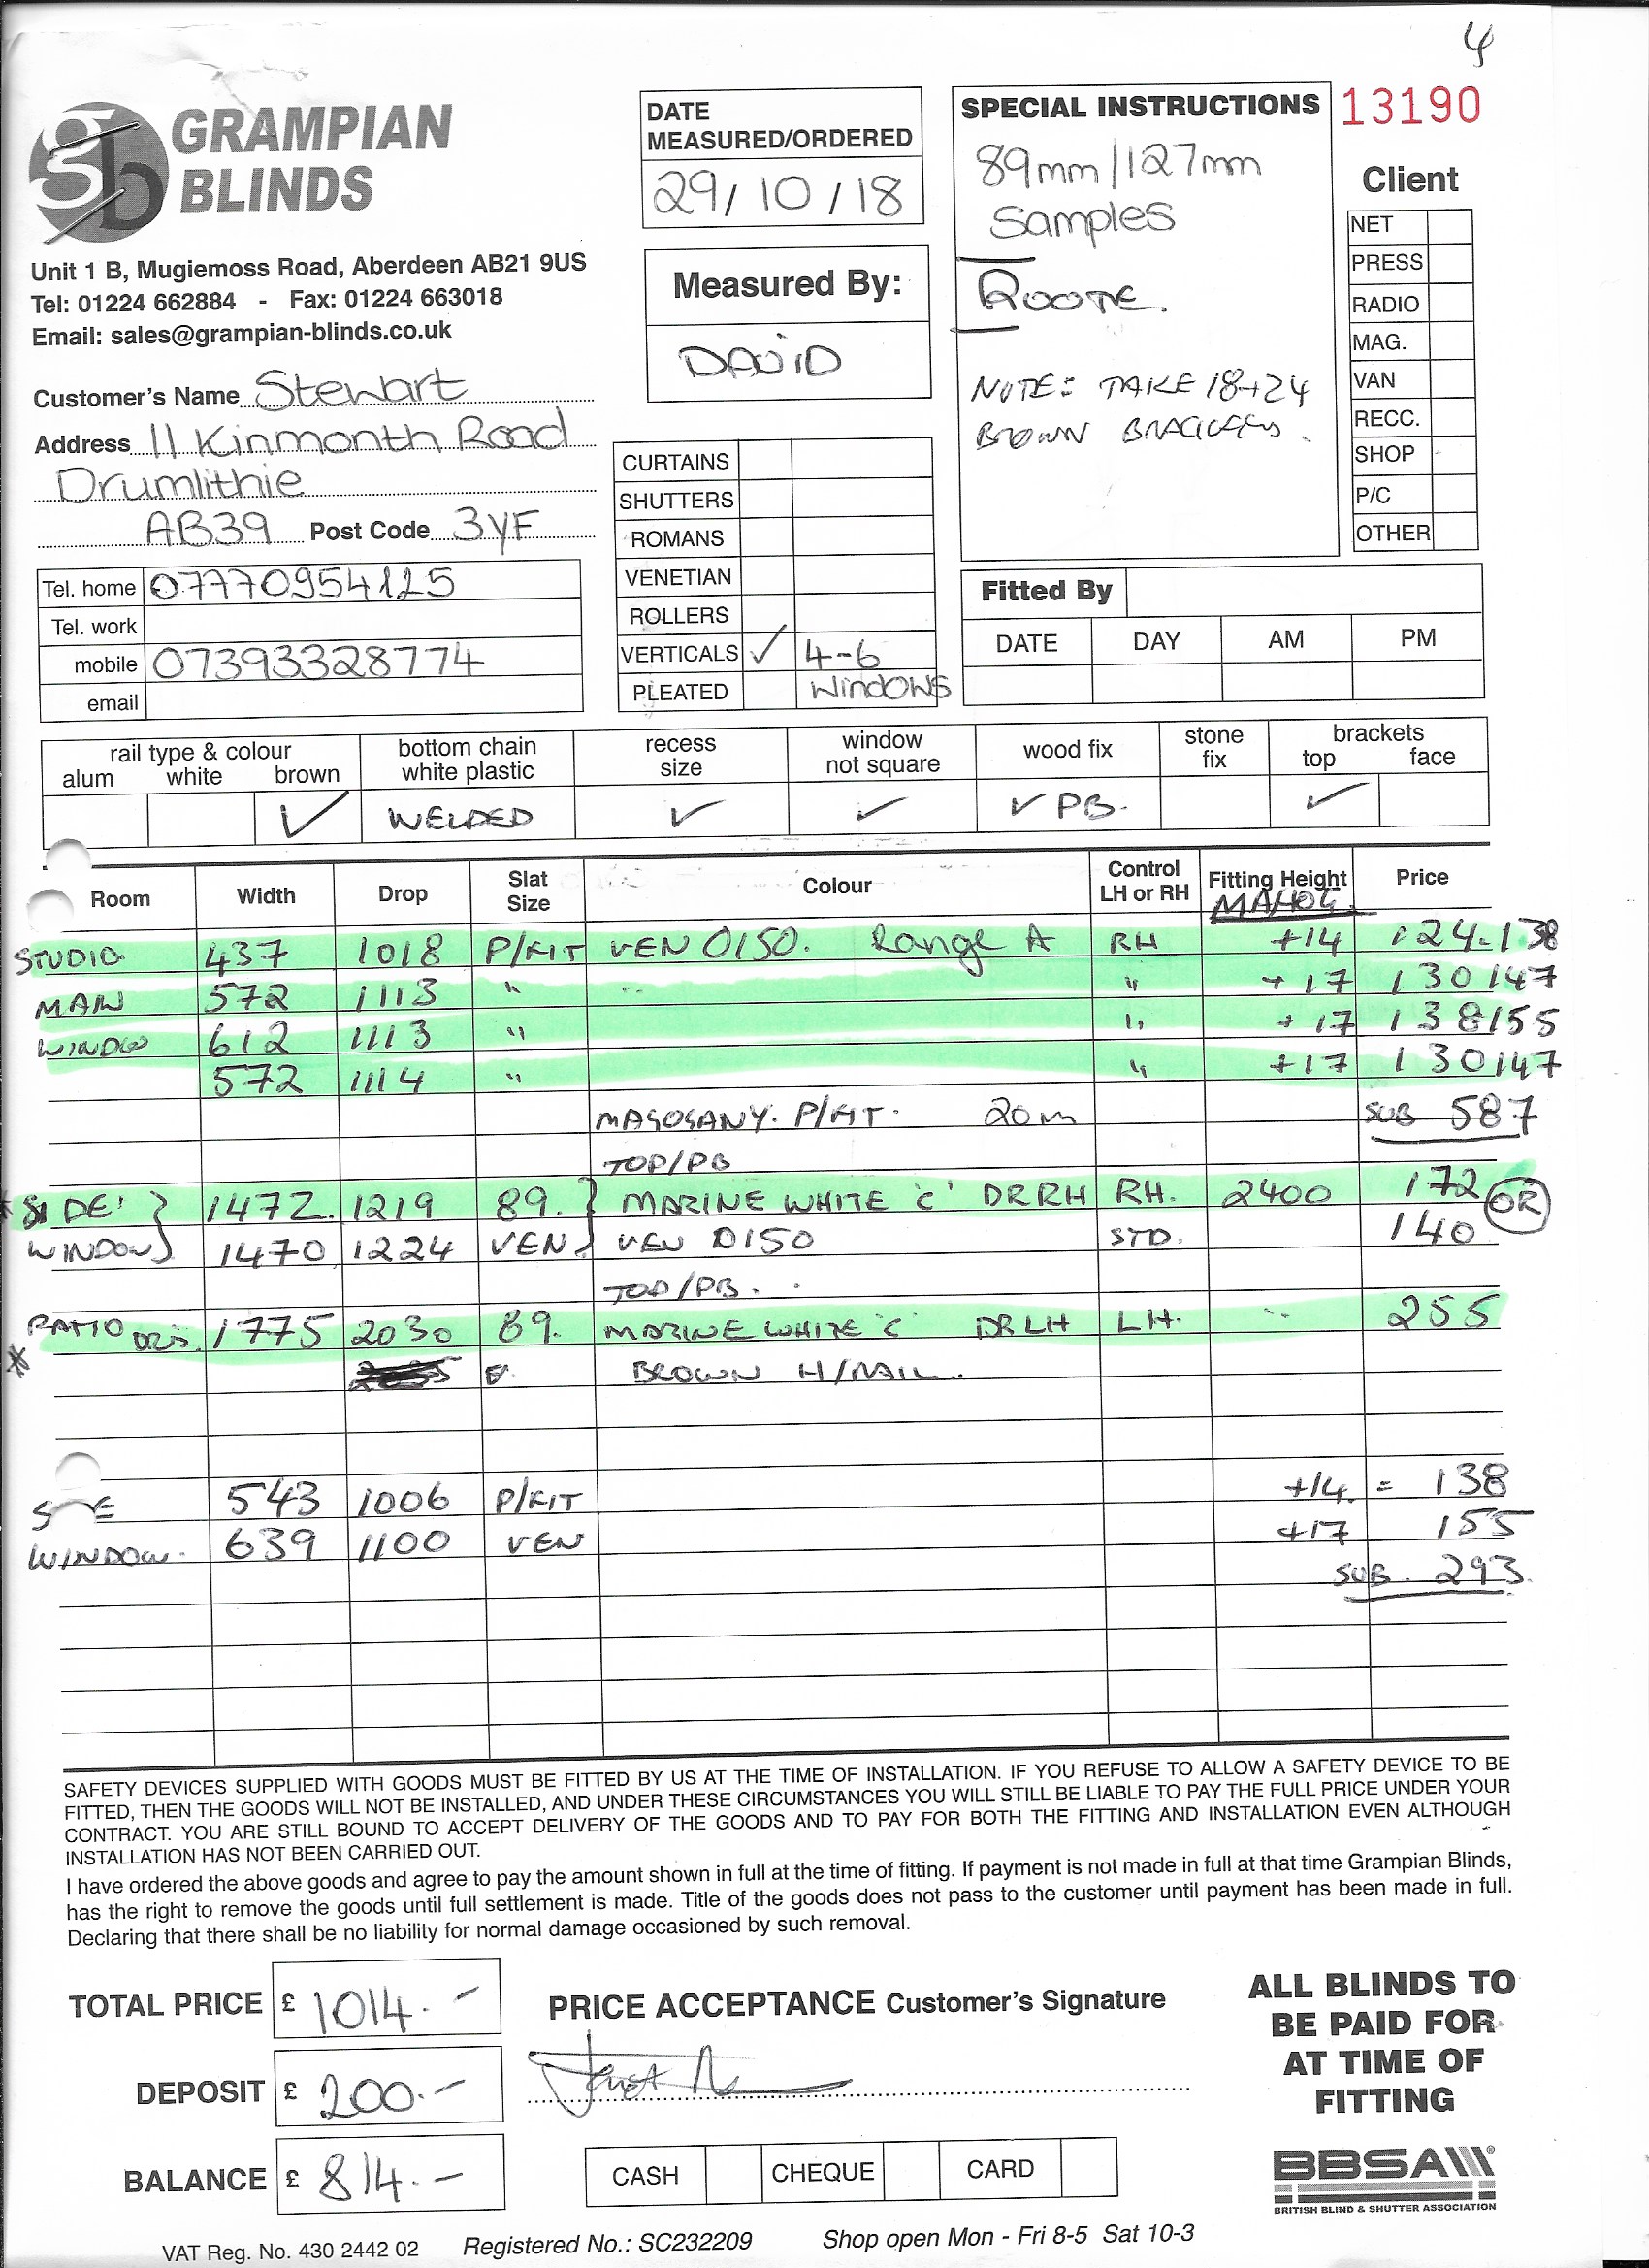 4
GRAMPIAN
BLINDS
Unit 1 B, Mugiemoss Road, Aberdeen AB21 9US
Tel: 01224 662884 - Fax: 01224 663018
Email: sales@grampian-blinds.co.uk
Customer's Name Stewart
Address 11 Kinmonth Road
Drumlithie
AB39 Post Code 3YF
Tel. home 07770954125
Tel. work
mobile 07393328774
email
DATE
MEASURED/ORDERED
29/10/18
Measured By:
DAVID
CURTAINS
SHUTTERS
ROMANS
VENETIAN
ROLLERS
VERTICALS ✓ 4-6
PLEATED Windows
SPECIAL INSTRUCTIONS
89mm/127mm
Samples
NOTE: TAKE 18+24
BROWN BRACKETS.
13190
Client
NET
PRESS
RADIO
MAG.
VAN
RECC.
SHOP
P/C
OTHER
Fitted By
DATE DAY AM PM
rail type & colour
alum white brown
bottom chain
white plastic
recess
size
window
not square
wood fix
stone
fix
brackets
top face
✓ WELDED ✓ ✓ ✓ PB. ✓
Room Width Drop Slat Size Colour Control LH or RH Fitting Height Price
MAHOG.
STUDIO 437 1018 P/FIT VEN 0150. Range A RH +14 124.138
MAIN 572 1113 " " " +17 130 147
WINDOW 612 1113 " " +17 138 155
572 1114 " " +17 130 147
MAGOGANY. P/FIT. 20m SUB 587
TOP/PB
* SIDE' 1472. 1219 89. MARINE WHITE 'C' DRRH RH. 2400 172 OR
WINDOW 1470 1224 VEN VEN 0150 STD. 140
TOP/PB.
* PATIO DRS. 1775 2030 89. MARINE WHITE 'C' DRLH LH. " 255
BROWN H/RAIL.
543 1006 P/FIT +14. = 138
WINDOW. 639 1100 VEN +17 155
SUB. 293.
SAFETY DEVICES SUPPLIED WITH GOODS MUST BE FITTED BY US AT THE TIME OF INSTALLATION. IF YOU REFUSE TO ALLOW A SAFETY DEVICE TO BE
FITTED, THEN THE GOODS WILL NOT BE INSTALLED, AND UNDER THESE CIRCUMSTANCES YOU WILL STILL BE LIABLE TO PAY THE FULL PRICE UNDER YOUR
CONTRACT. YOU ARE STILL BOUND TO ACCEPT DELIVERY OF THE GOODS AND TO PAY FOR BOTH THE FITTING AND INSTALLATION EVEN ALTHOUGH
INSTALLATION HAS NOT BEEN CARRIED OUT.
I have ordered the above goods and agree to pay the amount shown in full at the time of fitting. If payment is not made in full at that time Grampian Blinds,
has the right to remove the goods until full settlement is made. Title of the goods does not pass to the customer until payment has been made in full.
Declaring that there shall be no liability for normal damage occasioned by such removal.
TOTAL PRICE £ 1014.-
DEPOSIT £ 200.-
BALANCE £ 814.-
PRICE ACCEPTANCE Customer's Signature
CASH CHEQUE CARD
ALL BLINDS TO
BE PAID FOR
AT TIME OF
FITTING
BBSA
BRITISH BLIND & SHUTTER ASSOCIATION
VAT Reg. No. 430 2442 02 Registered No.: SC232209 Shop open Mon - Fri 8-5 Sat 10-3